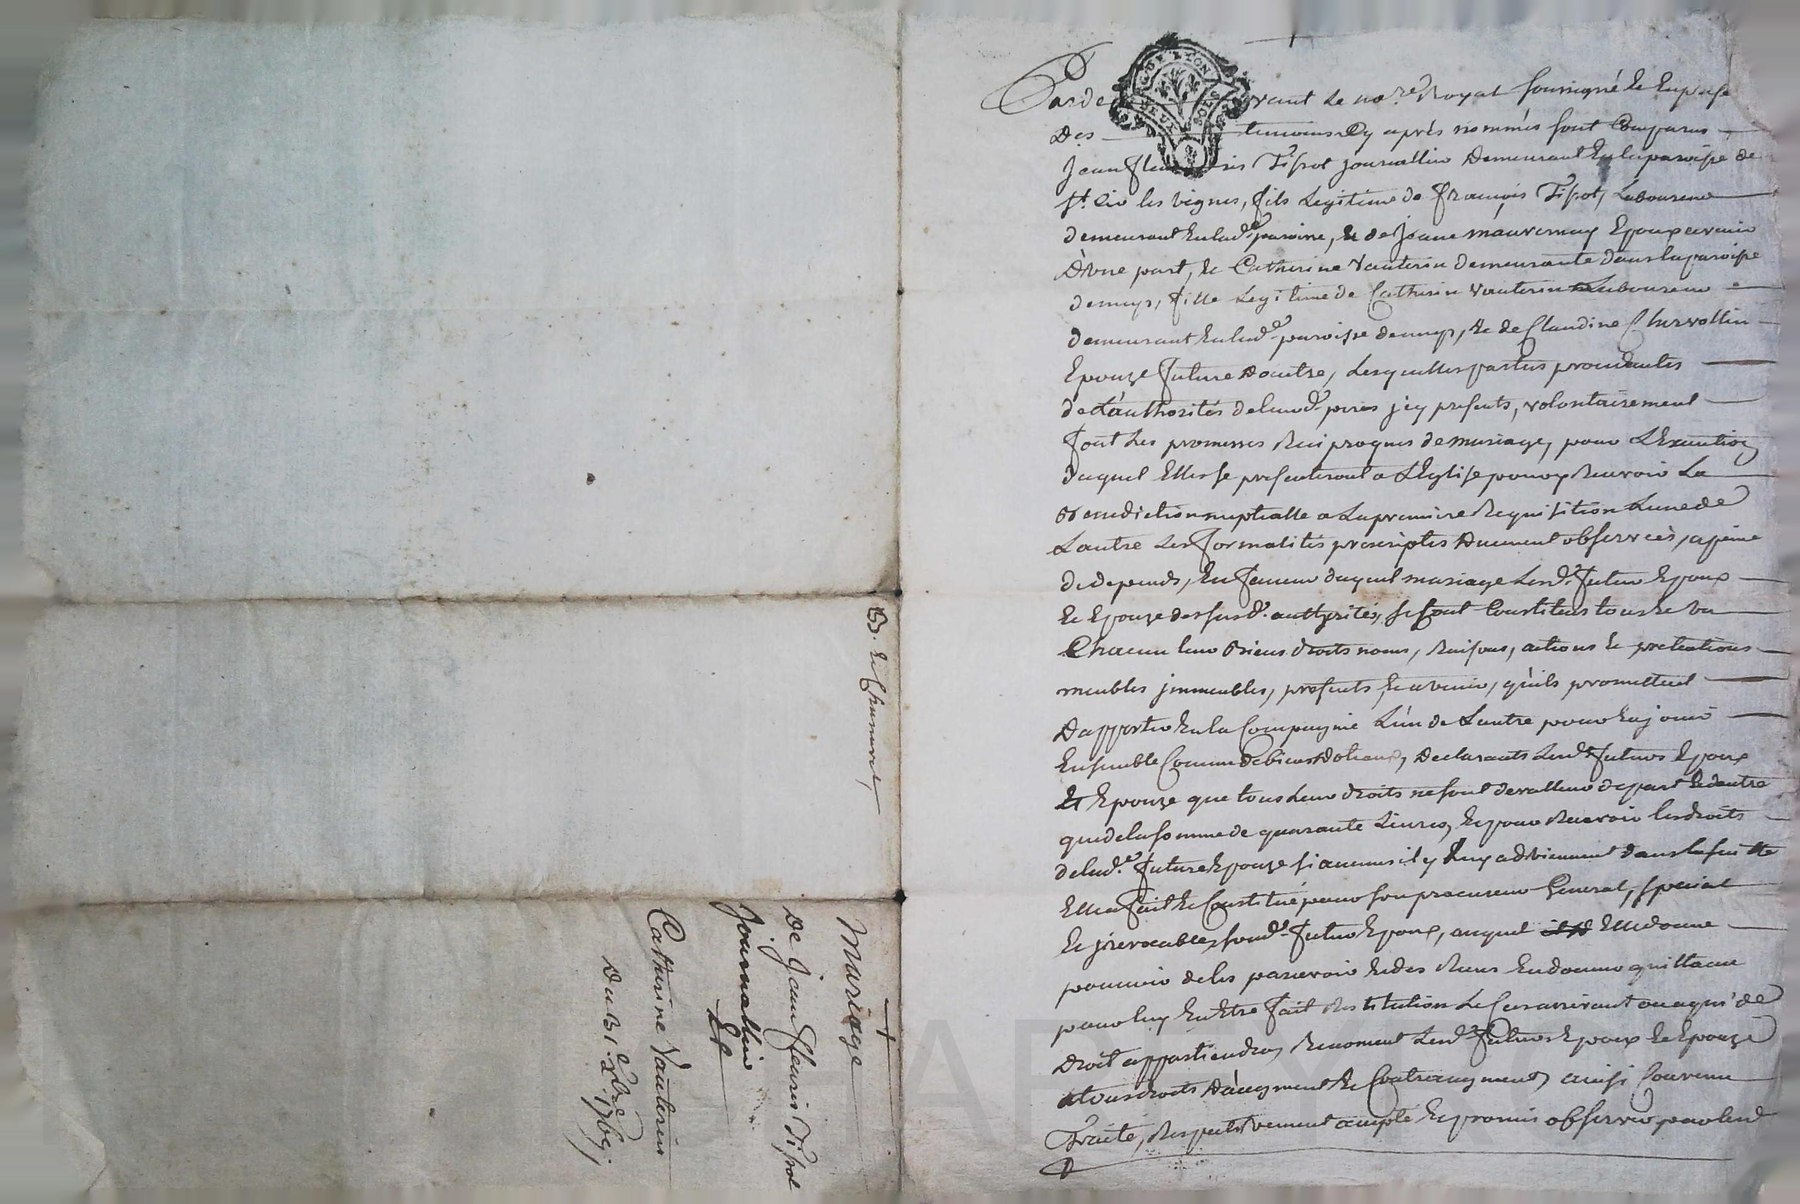 Parde vant Le no.re Royal soussigné et En presence
Des temoins Cy après nommés sont Comparus
Jean Fleuris Tissot journallier Demeurant En la paroisse de
st. Cir les vignes, fils Legitime de François Tissot, Laboureur
demeurant En lad.e paroisse, et de Jeane mauvernay Epoux avenir
D'Une part, et Catherine Vauterin demeurante dans la paroisse
fille Legitime de Catherin Vauterin Laboureur
demeurant En lad.e paroisse et de Claudine Chervollin
Epouze future Dautre, Lesquelles parties procedantes
de L'authorités de leurd. peres jcy presents, volontairement
font Les promesses Reciproques de mariage, pour L'Execution
duquel Elles se presenteront a L'Eglise pour y Recevoir La
Benediction nuptialle a La premiere Requisition L'une de
Lautre Les formalités prescriptes Duement observées, a peine
de depends, En faveur duquel mariage Lesd. futur Epoux
Et Epouze de susd. authorités, se sont Constitués tous Et un
Chacun leur Biens droits noms, Raisons, actions Et pretentions
meubles jmmeubles, presents Et avenir, qu'ils promettent
Dapporter En la Compagnie L'un de Lautre pour En jouir
Ensemble Comme de biens Dotaux, Declarants Lesd. futurs Epoux
Et Epouze que tous Leur droits ne sont de valleur de part Et dautre
que de la somme de quarante Livres, Et pour Recevoir les droits
de lad.e future Epouze si aucuns il y Luy adviennent dans la suitte
Elle a fait Et Constitué pour son procureur General, special
Et jrrevocable, sond. futur Epoux, auquel Elle donne
pouvoir de les percevoir Et des Reçus En donner quittance
pour luy En Etre fait Restitution Le Cas arrivant ou a qui de
Droit appartiendra, Renoncent Lesd. futurs Epoux Et Epouze
a tous droits D'augment Et Contraugment, ainsi Convenu
Traité, Respectivement accepté Et promis observer par Lesd
B. et Chamaret
Mariage
De Jean fleuris Tissot
Journallier
Et
Catherine Vauterin
Du 31.e Xbre 1769.